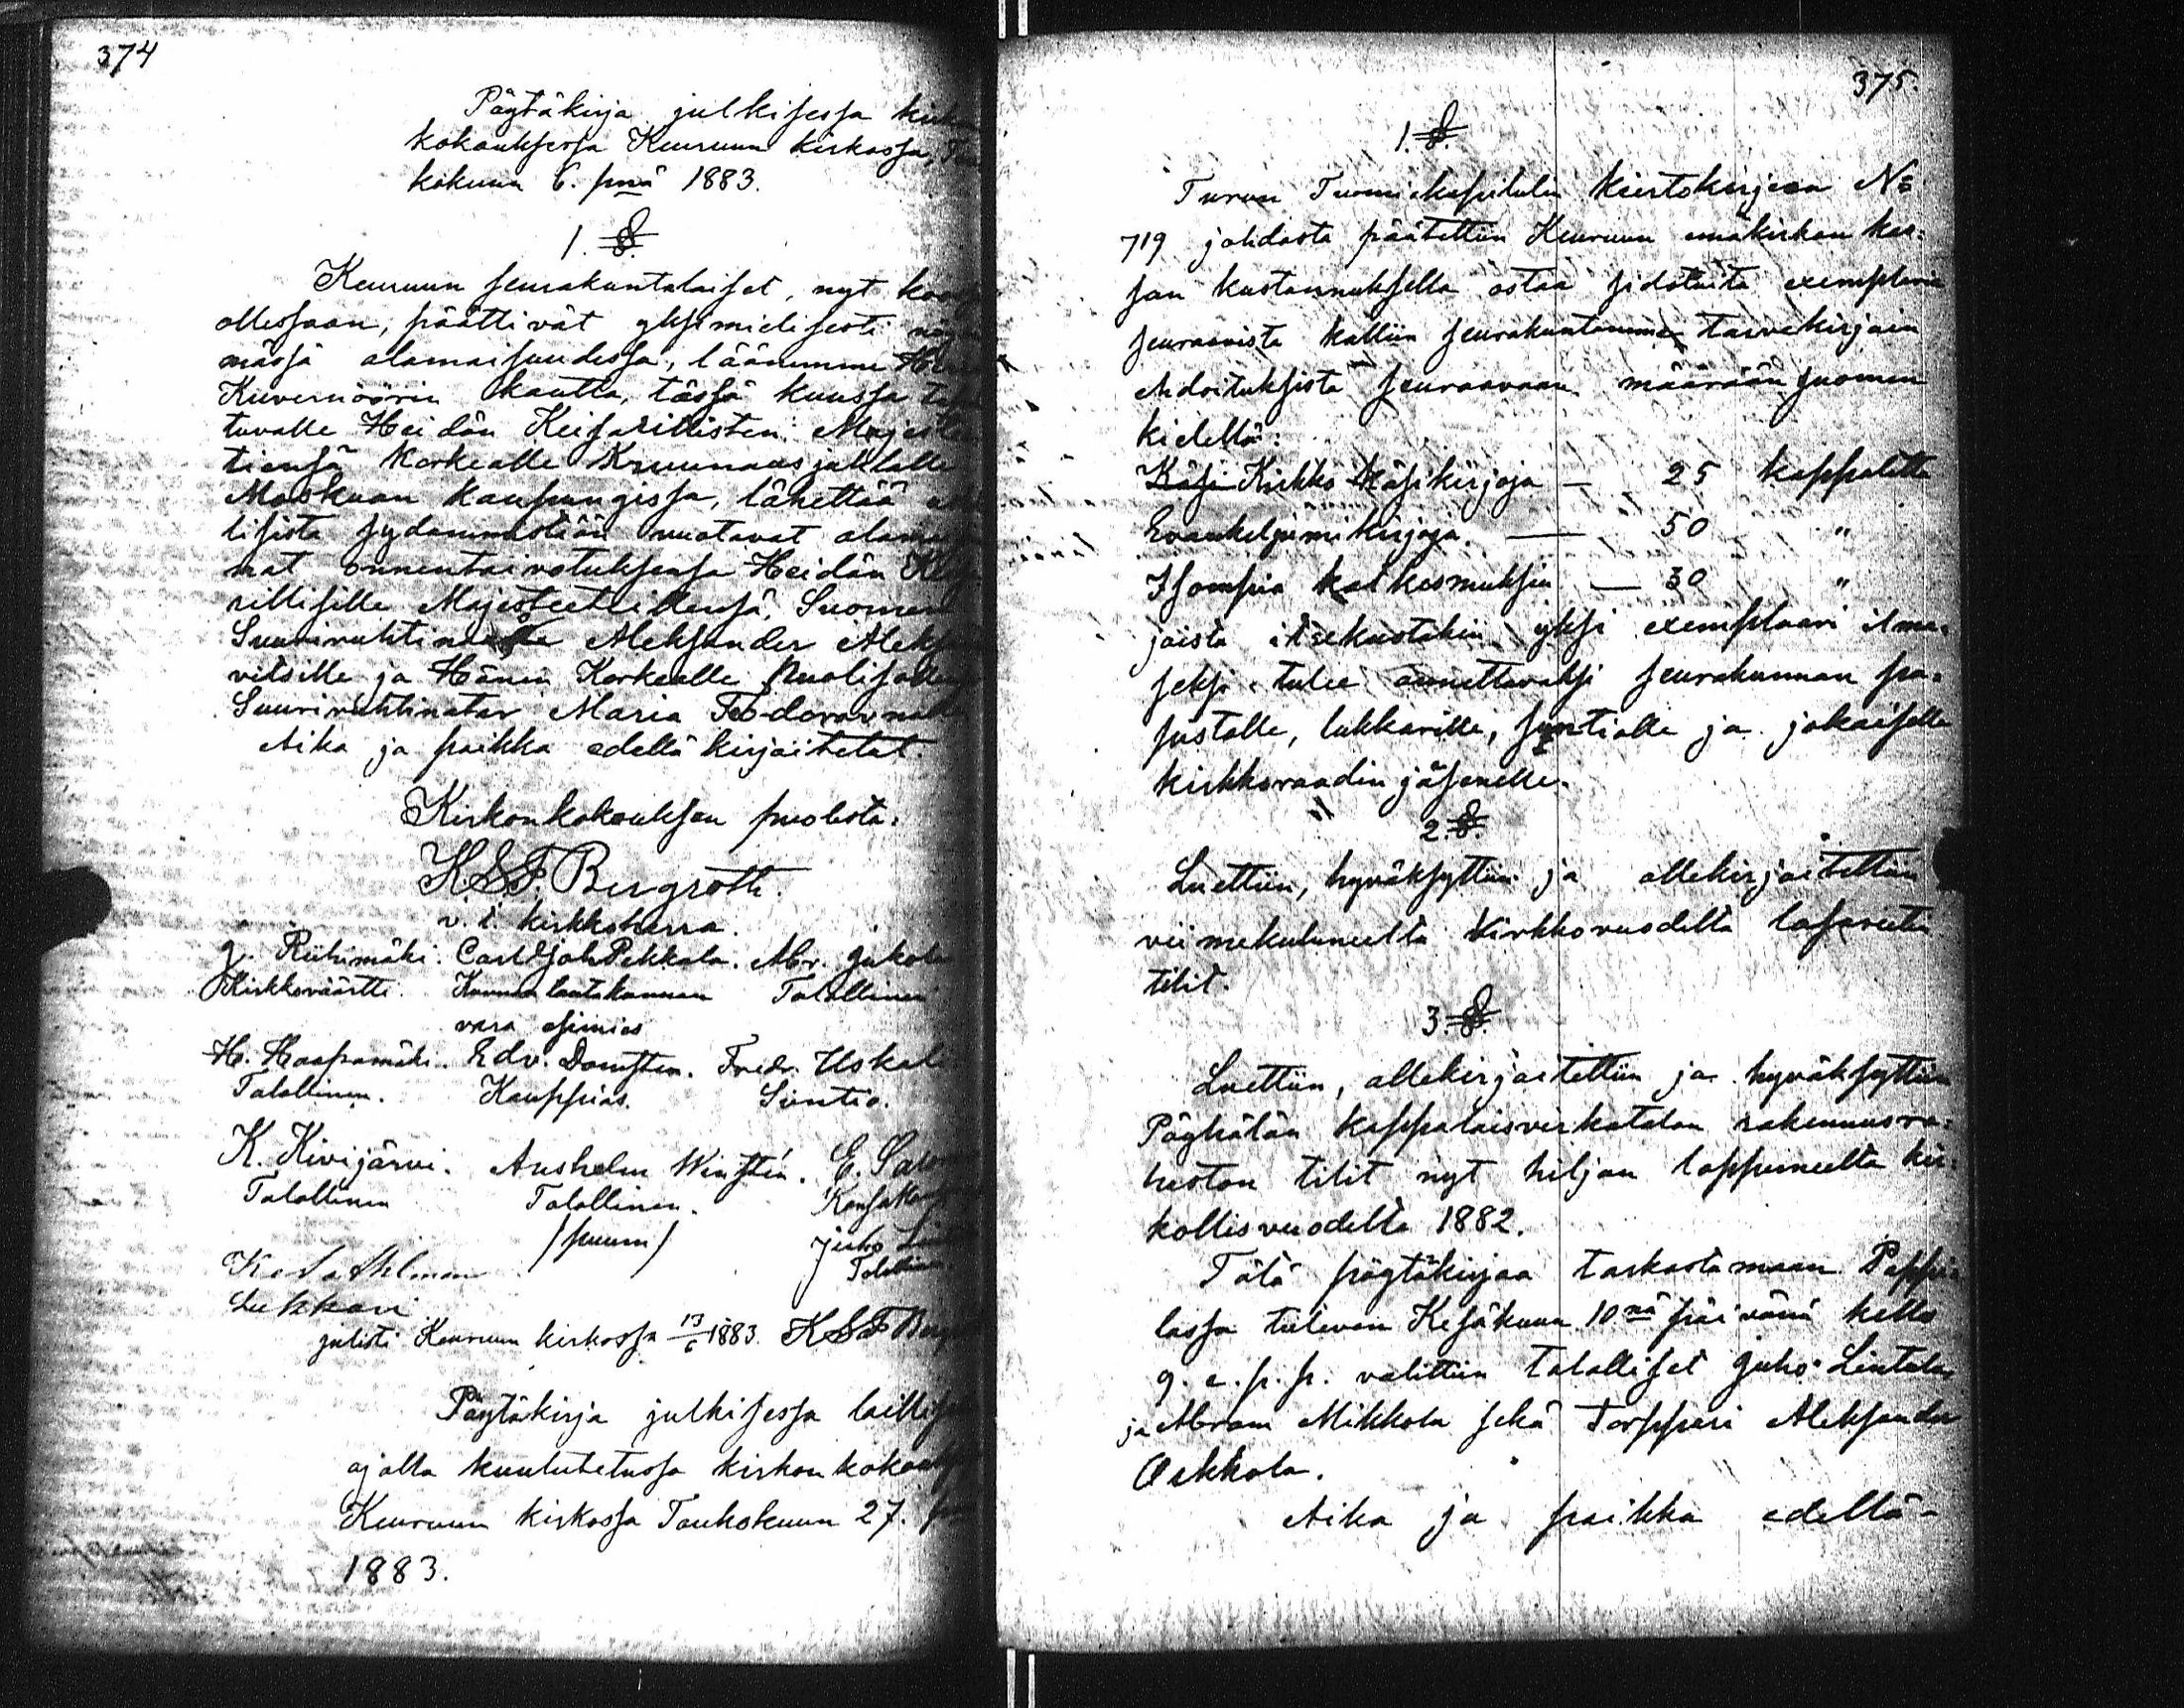 374
Pöytäkirja julkisessa
kokouksessa Keuruun kirkossa,
kokuun 6. pnä 1883.
1. §.
Keuruun seurakuntalaiset, nyt
ollessaan, päättivät yksimielisesti
mässä alamaisuudessa, läänimme
Kuvernöörin kautta, tässä kuussa
tuvalle Heidän Keisarillisten Majestee
tiensä korkealle Kruunausjuhlalle
Moskovan kaupungissa, lähettää
lisista sydämmistään vuotavat
mat onnentoivotuksensa Heidän
rillisille Majesteeteillensä, Suomen
Suuriruhtinaalle Aleksander
vitsille ja Hänen Korkealle Puolisolleen
Suuriruhtinatar Maria Feodorovnalle
Aika ja paikka edellä kirjoitetut.
Kirkonkokouksen puolesta:
K.S.F. Bergroth.
v. t. kirkkoherra.
J. Riihimäki. Carl Joh Pekkala. Abr. Jukola
Kirkkoväärtti. Kunnan lautakunnan Talollinen
vara esimies
H. Haapamäki. Edv. Fredr. Uskali
Talollinen. Kauppias. Suntio.
K. Kivijärvi. Anshelm E.
Talollinen Talollinen.
/puum/ Juho
Talollinen
Lukkari
julisti Keuruun kirkossa 13/6 1883. K S F
Pöytäkirja julkisessa
ajalla kuulutetussa kirkon
Keuruun kirkossa Toukokuun 27.
1883.
375.
1. §.
Turun Tuomiokapitulin kiertokirjeen No
719 johdosta päätettiin Keuruun emäkirkon kas-
san kustannuksella ostaa sidotuita exemplaria
seuraavista kalliin seurakuntamme tarvekirjain
ehdoituksista seuraavaan määrään suomen
kielellä:
Käsi Kirkko Käsikirjoja — 25 kappaletta
Evankeljumikirjoja. — 50 "
Isompia katkesmuksia — 30 "
joista itsekustakin yksi exemplaari ilma-
seksi tulee annettavaksi seurakunnan pa-
pistolle, lukkarille, suntiolle ja jokaiselle
kirkkoraadin jäsenelle.
2. §.
Luettiin, hyväksyttiin ja allekirjoitettiin
viimekuluneelta kirkkovuodelta lasareetin
tilit.
3. §.
Luettiin, allekirjoitettiin ja hyväksyttiin
Pöyhölän kappalaisvirkatalon rakennusra-
haston tilit nyt hiljan loppuneelta kir-
kollisvuodelta 1882.
Tätä pöytäkirjaa tarkastamaan Pappi-
lassa tulevan Kesäkuun 10nä päivänä kello
9. e. p. p. valittiin talolliset Juho Lintula
ja Abram Mikkola sekä Torppari Aleksander
Oekkola.
Aika ja paikka edellä-